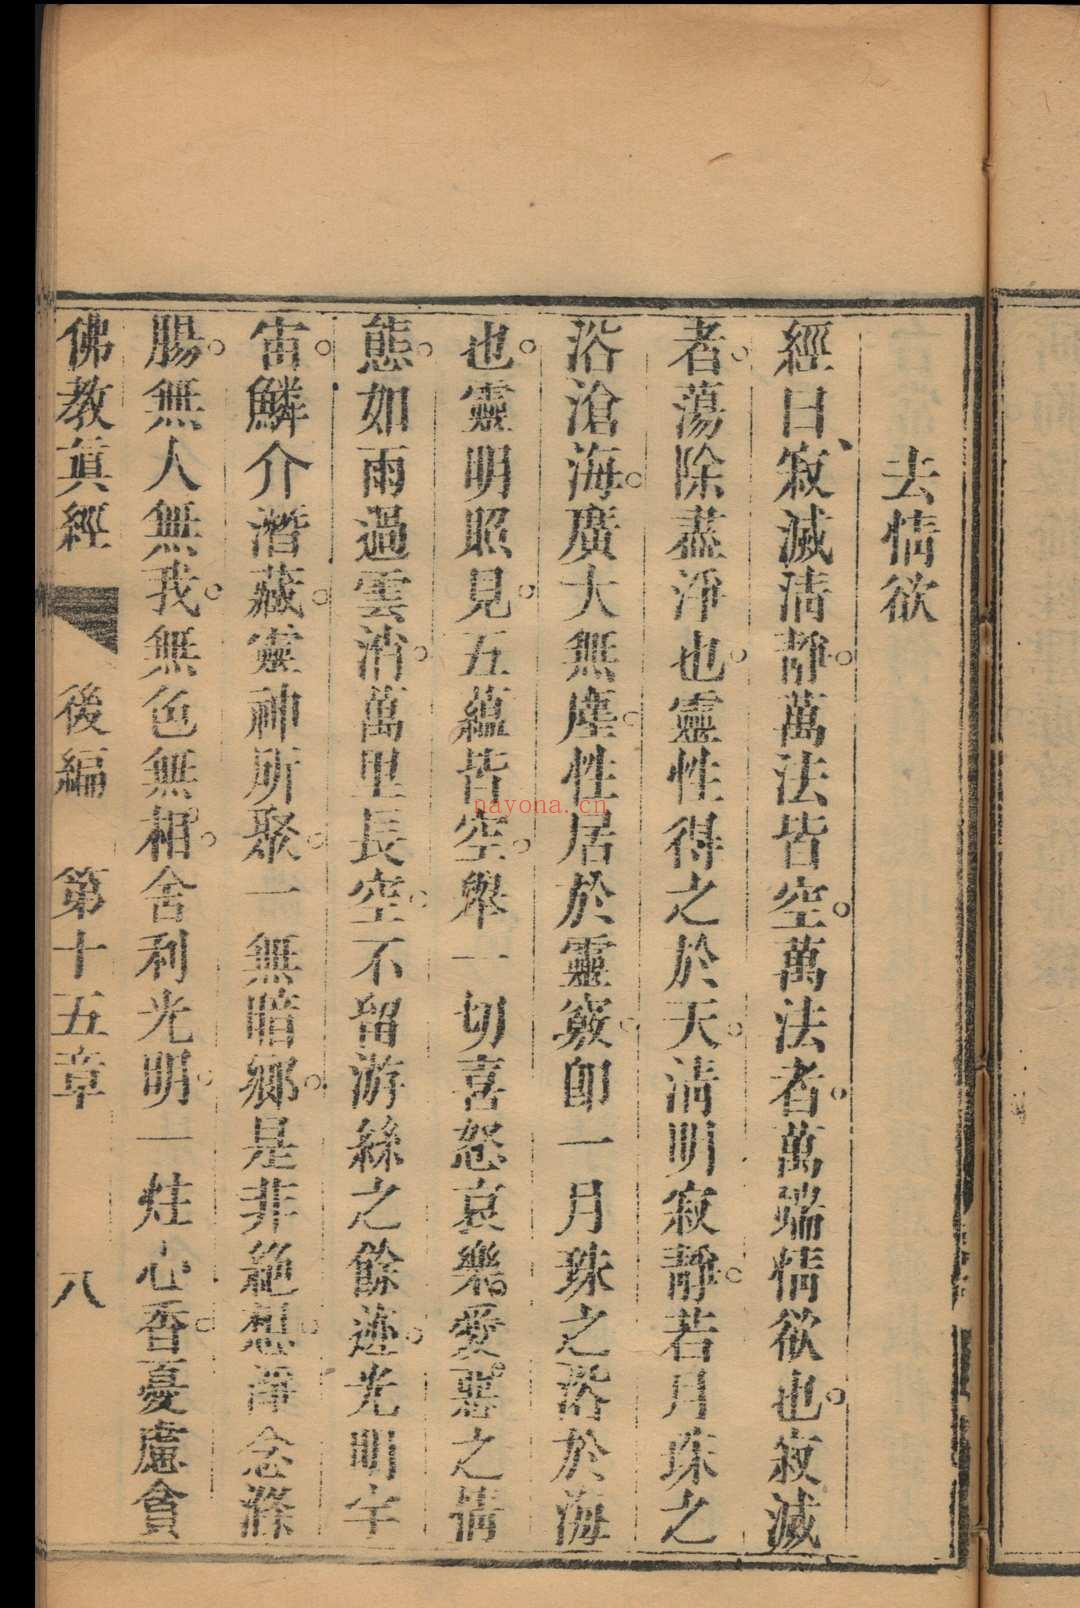 去情欲
經曰、寂滅清靜。萬法皆空。萬法者。萬端情欲也。寂滅
者。蕩除盡淨也。靈性得之於天。清明寂靜。若月珠之
浴滄海。廣大無塵。性居於靈竅。即一月珠之浴於海
也。靈明照見。五蘊皆空。舉一切喜怒哀樂。愛。惡之情
態。如雨過雲消。萬里長空。不留游絲之餘迹。光明宇
宙。鱗介潛藏。靈神所聚。一無暗鄉。是非絕想。淨念滌
腸。無人無我。無色無相。舍利光明。一炷心香。憂慮貪
佛教眞經 後編 第十五章 八
nayona.cn